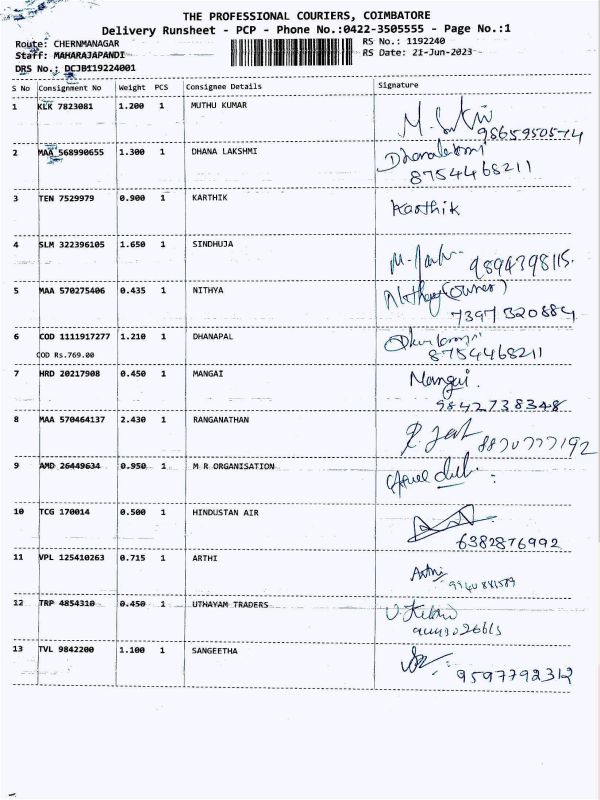 THE PROFESSIONAL COURIERS, COIMBATORE
Delivery Runsheet - PCP - Phone No.:0422-3505555 - Page No.:1
Route: CHERNMANAGAR RS No.: 1192240
Staff: MAHARAJAPANDI RS Date: 21-Jun-2023
DRS No.: DCJB119224001
S No Consignment No Weight PCS Consignee Details Signature
1 KLK 7823081 1.200 1 MUTHU KUMAR
9865950574
2 MAA 568990655 1.300 1 DHANA LAKSHMI Dhanalakshmi
8754468211
3 TEN 7529979 0.900 1 KARTHIK Karthik
4 SLM 322396105 1.650 1 SINDHUJA 9894398115.
5 MAA 570275406 0.435 1 NITHYA Nithya (owner)
7397320884
6 COD 1111917277 1.210 1 DHANAPAL
COD Rs.769.00 8754468211
7 HRD 20217908 0.450 1 MANGAI Mangai.
9842738348
8 MAA 570464137 2.430 1 RANGANATHAN 8870777192
9 AMD 26449634 0.950 1 M R ORGANISATION
10 TCG 170014 0.500 1 HINDUSTAN AIR
6382876992
11 VPL 125410263 0.715 1 ARTHI Arthi
12 TRP 4854310 0.450 1 UTHAYAM TRADERS
13 TVL 9842200 1.100 1 SANGEETHA 9597792312